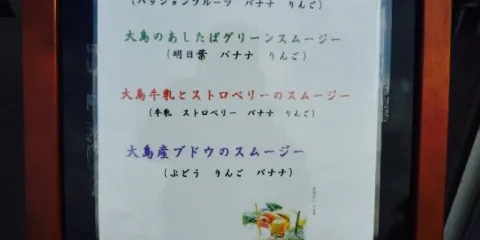 (パッションフルーツ　バナナ　りんご)
大島のあしたばグリーンスムージー
(明日葉　バナナ　りんご)
大島牛乳とストロベリーのスムージー
(牛乳　ストロベリー　バナナ　りんご)
大島産ブドウのスムージー
(ぶどう　りんご　バナナ)